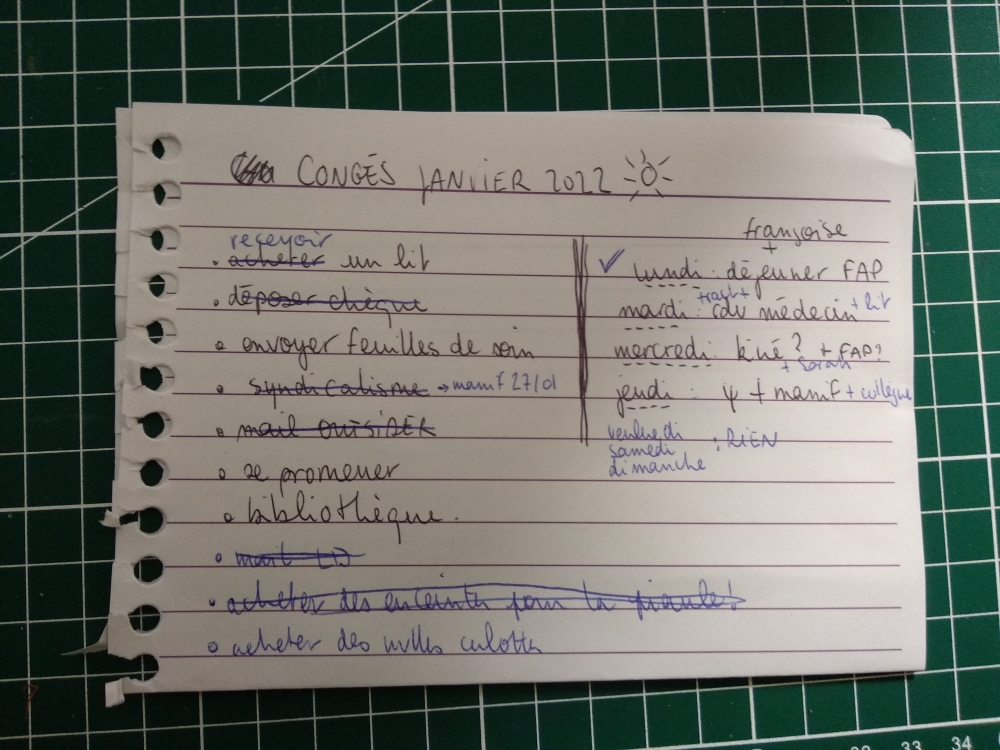 CONGÉS JANVIER 2022
recevoir
• acheter un lit
• déposer chèque
• envoyer feuilles de soin
• syndicalisme → manif 27/01
• mail OUTSIDER
• se promener
• bibliothèque.
• mail LD
• acheter des enceintes pour ta piaule!
• acheter des nvlles culottes
françoise
+
✓ lundi : déjeuner FAP
tract +
mardi : rdv médecin + lit
mercredi : kiné ? + FAP?
+ sarah
jeudi : ψ + manif + collègue
vendredi
samedi : RIEN
dimanche
33 34